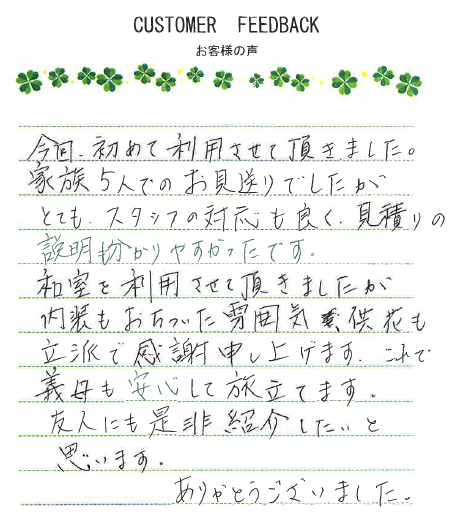 CUSTOMER FEEDBACK
お客様の声
今回、初めて利用させて頂きました。
家族5人でのお見送りでしたが
とても、スタッフの対応も良く、見積りの
説明も分かりやすかったです。
和室を利用させて頂きましたが
内装もおちついた雰囲気、供花も
立派で感謝申し上げます。これで
義母も安心して旅立てます。
友人にも是非紹介したいと
思います。
ありがとうございました。